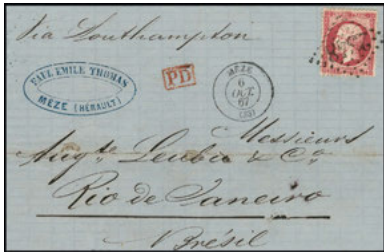 Via Southampton
PAUL EMILE THOMAS
MEZE (HÉRAULT)
PD
MEZE
6
OCT.
67
(33)
Messieurs
Aug.te Leuba & Co
Rio de Janeiro
Brésil